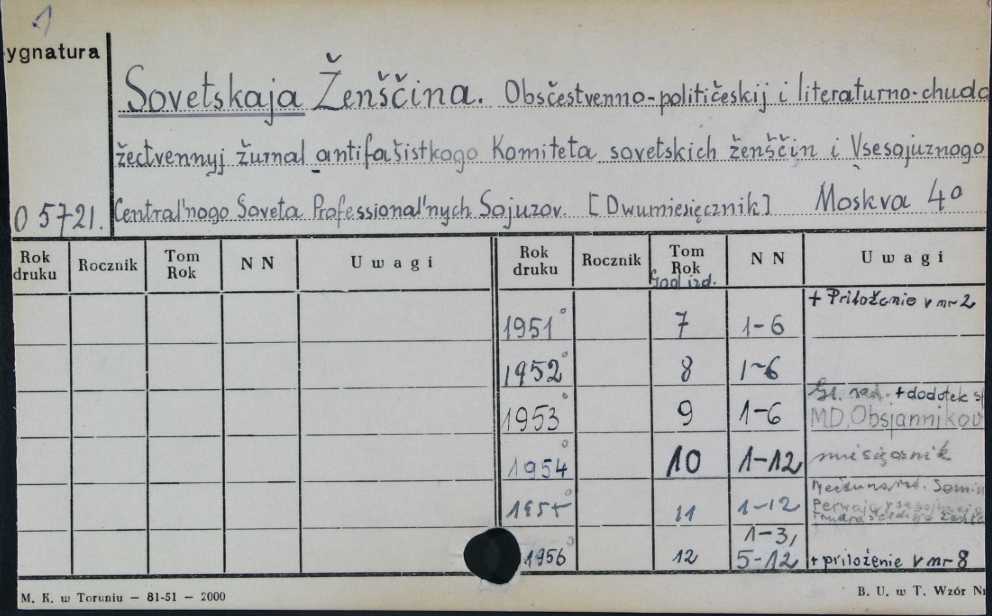 1
ygnatura
Sovetskaja Ženščina. Obsčestvenno-politčeskij i literaturno-chudo
žectvennyj žurnal antifašistkogo Komiteta sovetskich ženščin i Vsesojuznogo
O 5721. Central'nogo Soveta Professional'nych Sojuzov. [Dwumiesięcznik] Moskva 4º
Rok druku Rocznik Tom Rok N N Uwagi Rok druku Rocznik Tom Rok God izd. N N Uwagi
1951º 7 1-6 + Priloženie v nr 2
1952º 8 1-6
1953º 9 1-6 Gl. red. + dodotek
MD. Obsjannikov
1954º 10 1-12 miesięcznik
1955º 11 1-12
1956 12 1-3, 5-12 + priloženie v nr 8
M. K. w Toruniu — 81-51 — 2000 B. U. w T. Wzór Nr